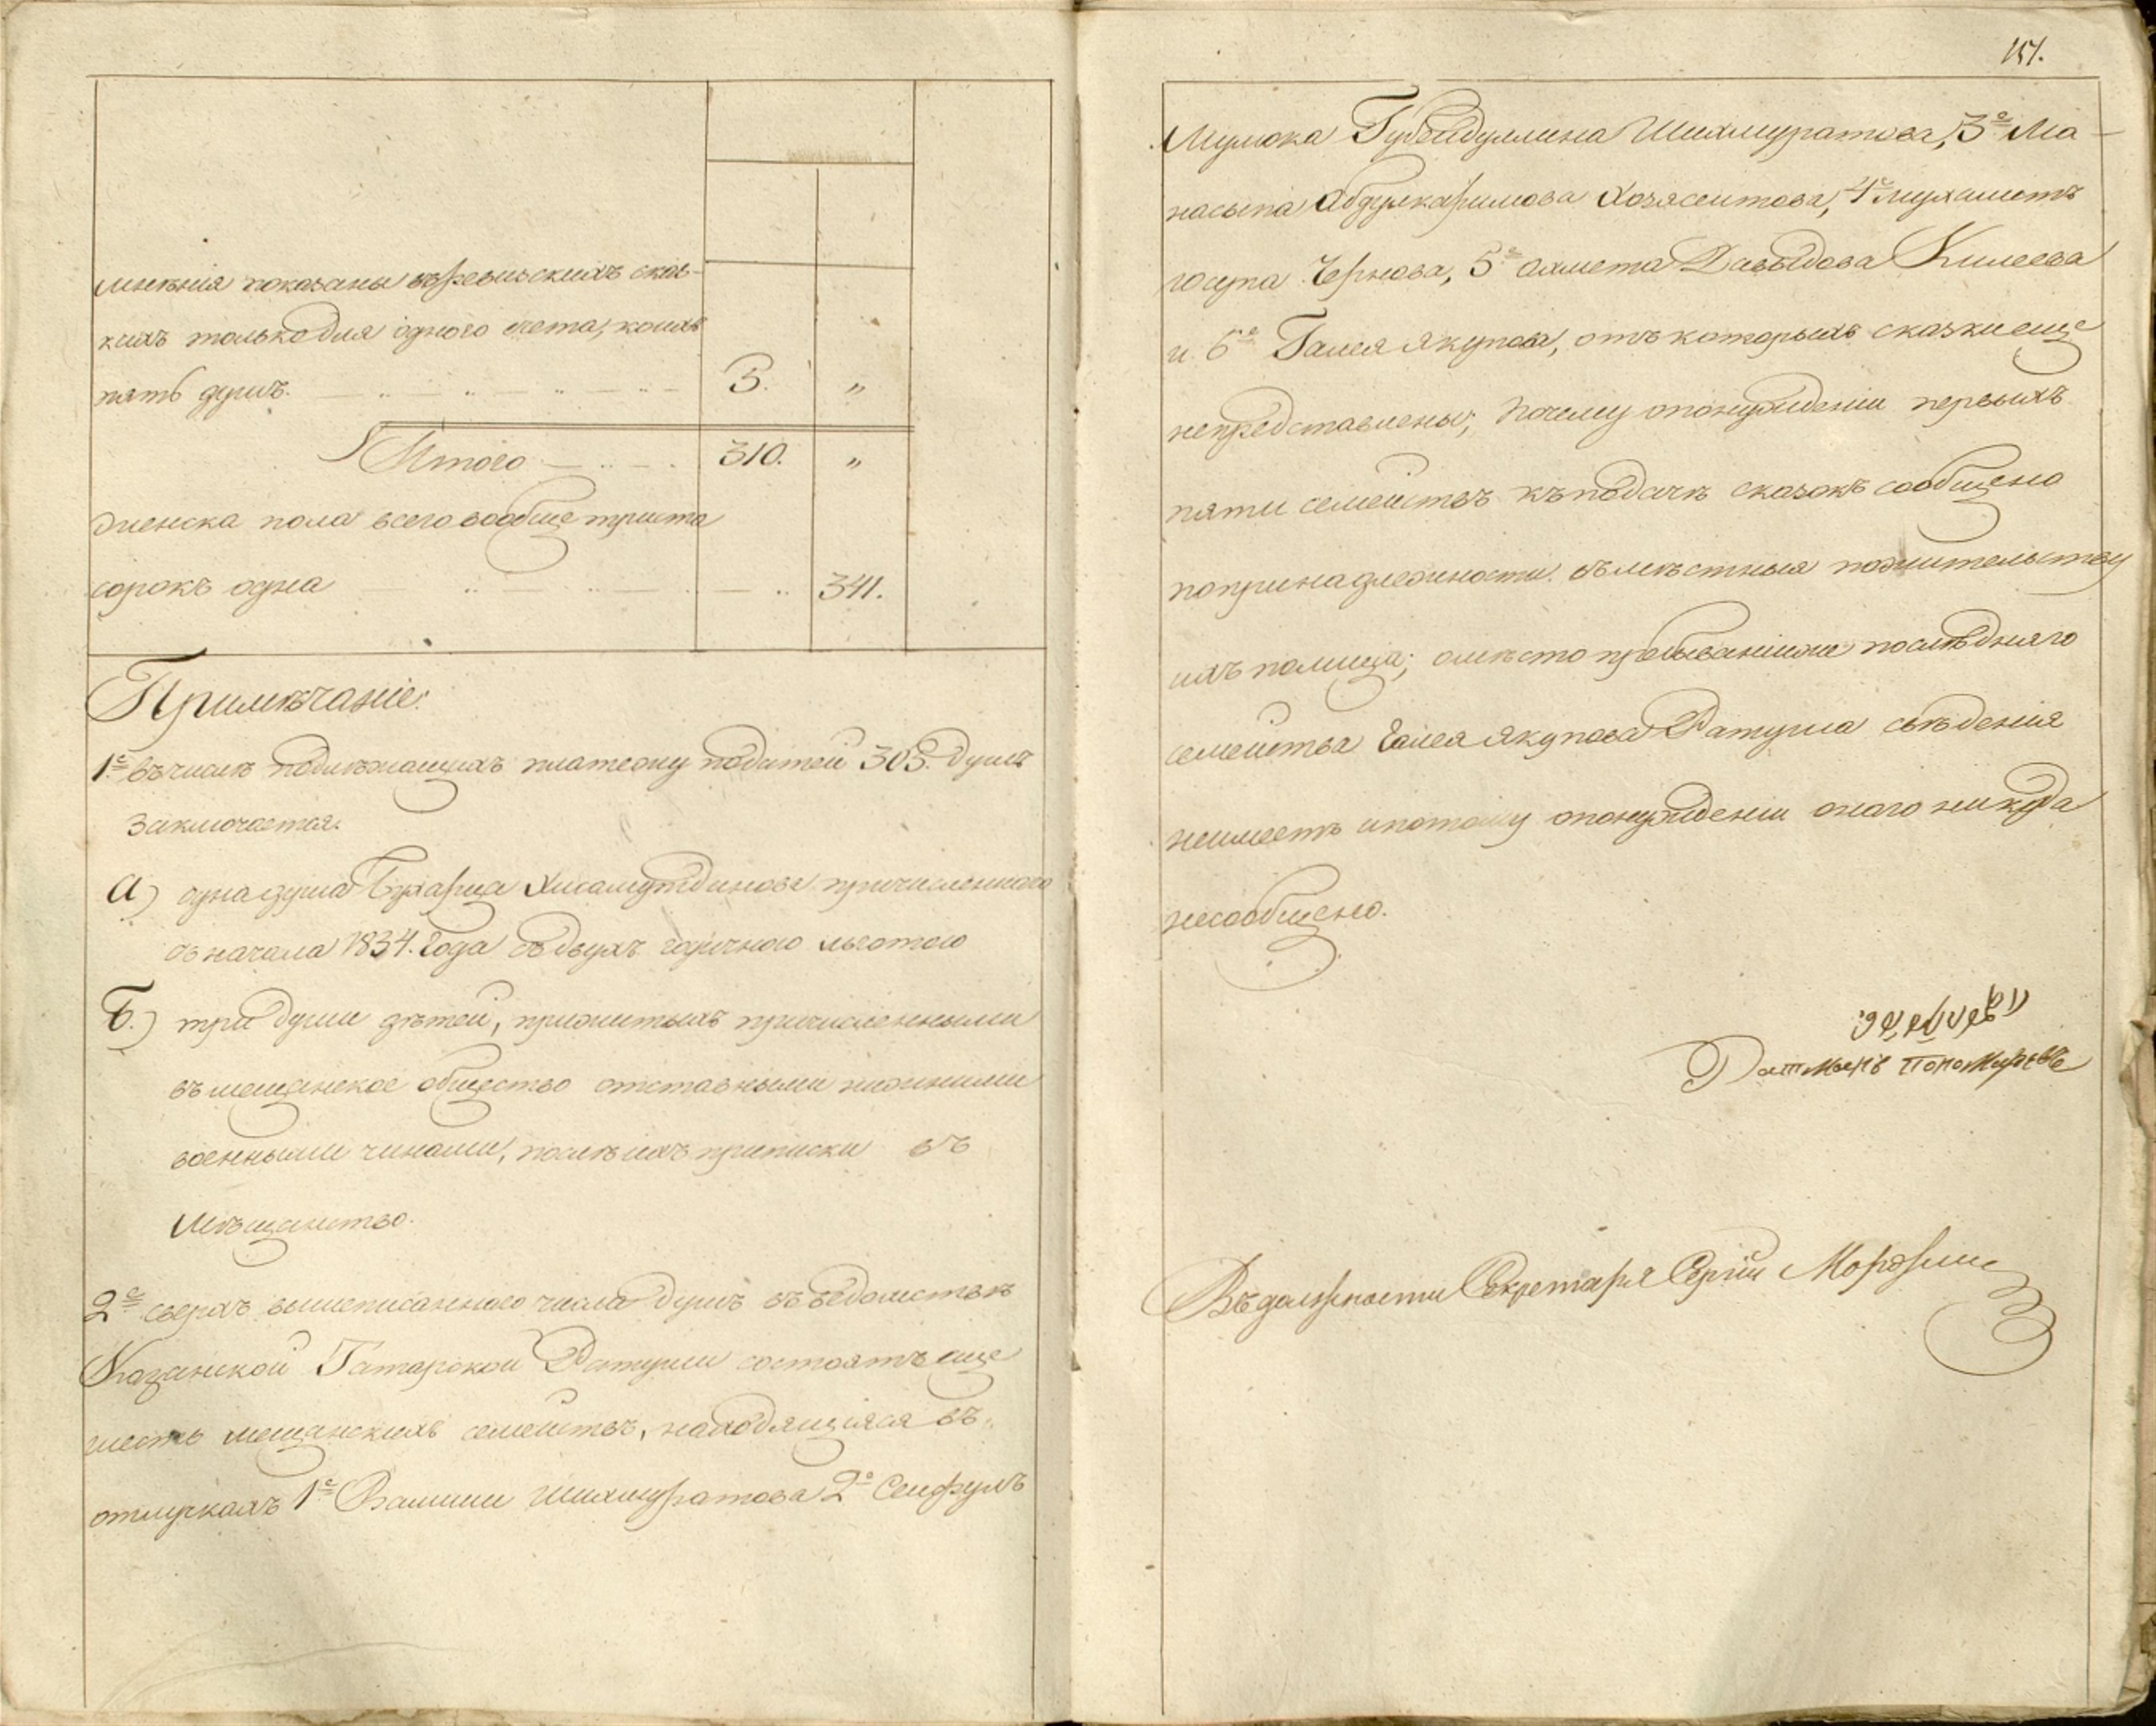 мненія показаны въ ревизскихъ сказ-
кахъ только для одного счета, коихъ
пять душъ. 5. „
Итого 310. „
женска пола всего вообще триста
сорокъ одна 341.
Примѣчаніе:
1е въ числѣ подлежащихъ платежу податей 305. душъ
заключается.
а) одна душа Бухарца Хисамутдинова причисленнаго
съ начала 1834. года съ двухъ годичною льготою
б.) три души дѣтей, прижитыхъ причисленными
въ мещанское общество отставными нижними
военными чинами, послѣ ихъ приписки въ
мѣщанство.
2е сверхъ вышеписаннаго числа душъ въ вѣдомствѣ
Казанской Татарской Ратуши состоятъ еще
шесть мещанскихъ семействъ, находящіяся въ
отлучкахъ 1е Валиши Шихмуратова 2е Сейфулъ
151.
Мулюка Губейдуллина Шихмуратова, 3е Ма-
насыпа Абдулкаримова Хозясеитова, 4е Мухаметъ
юсупа Чернова, 5е Ахмета Давыдова Килеева
и 6е Галея Якупова, отъ которыхъ сказки еще
непредставлены; почему о понужденіи первыхъ
пяти семействъ къ подачѣ сказокъ сообщено
по принадлежности въ мѣстныя по жительству
ихъ полиціи; о мѣсто пребываніи же послѣдняго
семейства Галея Якупова Ратуша свѣденія
неимѣетъ и потому о понужденіи онаго никуда
несообщено.
Ратманъ Пономаревъ
Въ должности Секретаря Сергій